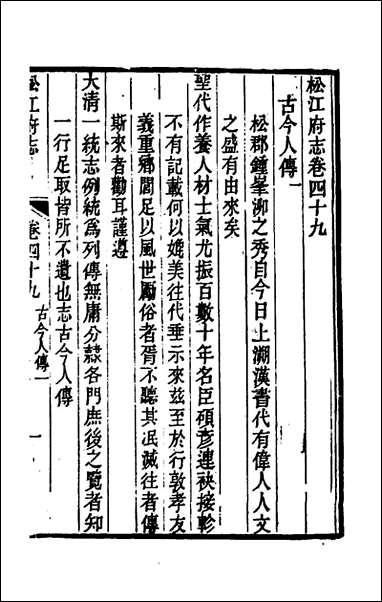 松江府志卷四十九
古今人傳一
松郡鍾峯泖之秀自今日上溯漢晉代有偉人人文
之盛有由來矣
聖代作養人材士氣尤振百數十年名臣碩彥連袂接軫
不有記載何以媲美往代垂示來茲至於行敦孝友
義重鄉閭足以風世勵俗者胥不聽其泯滅往者傳
斯來者勸耳謹遵
大清一統志例統爲列傳無庸分隸各門庶後之覽者知
一行足取皆所不遺也志古今人傳
松江府志
卷四十九
古今人傳一
一